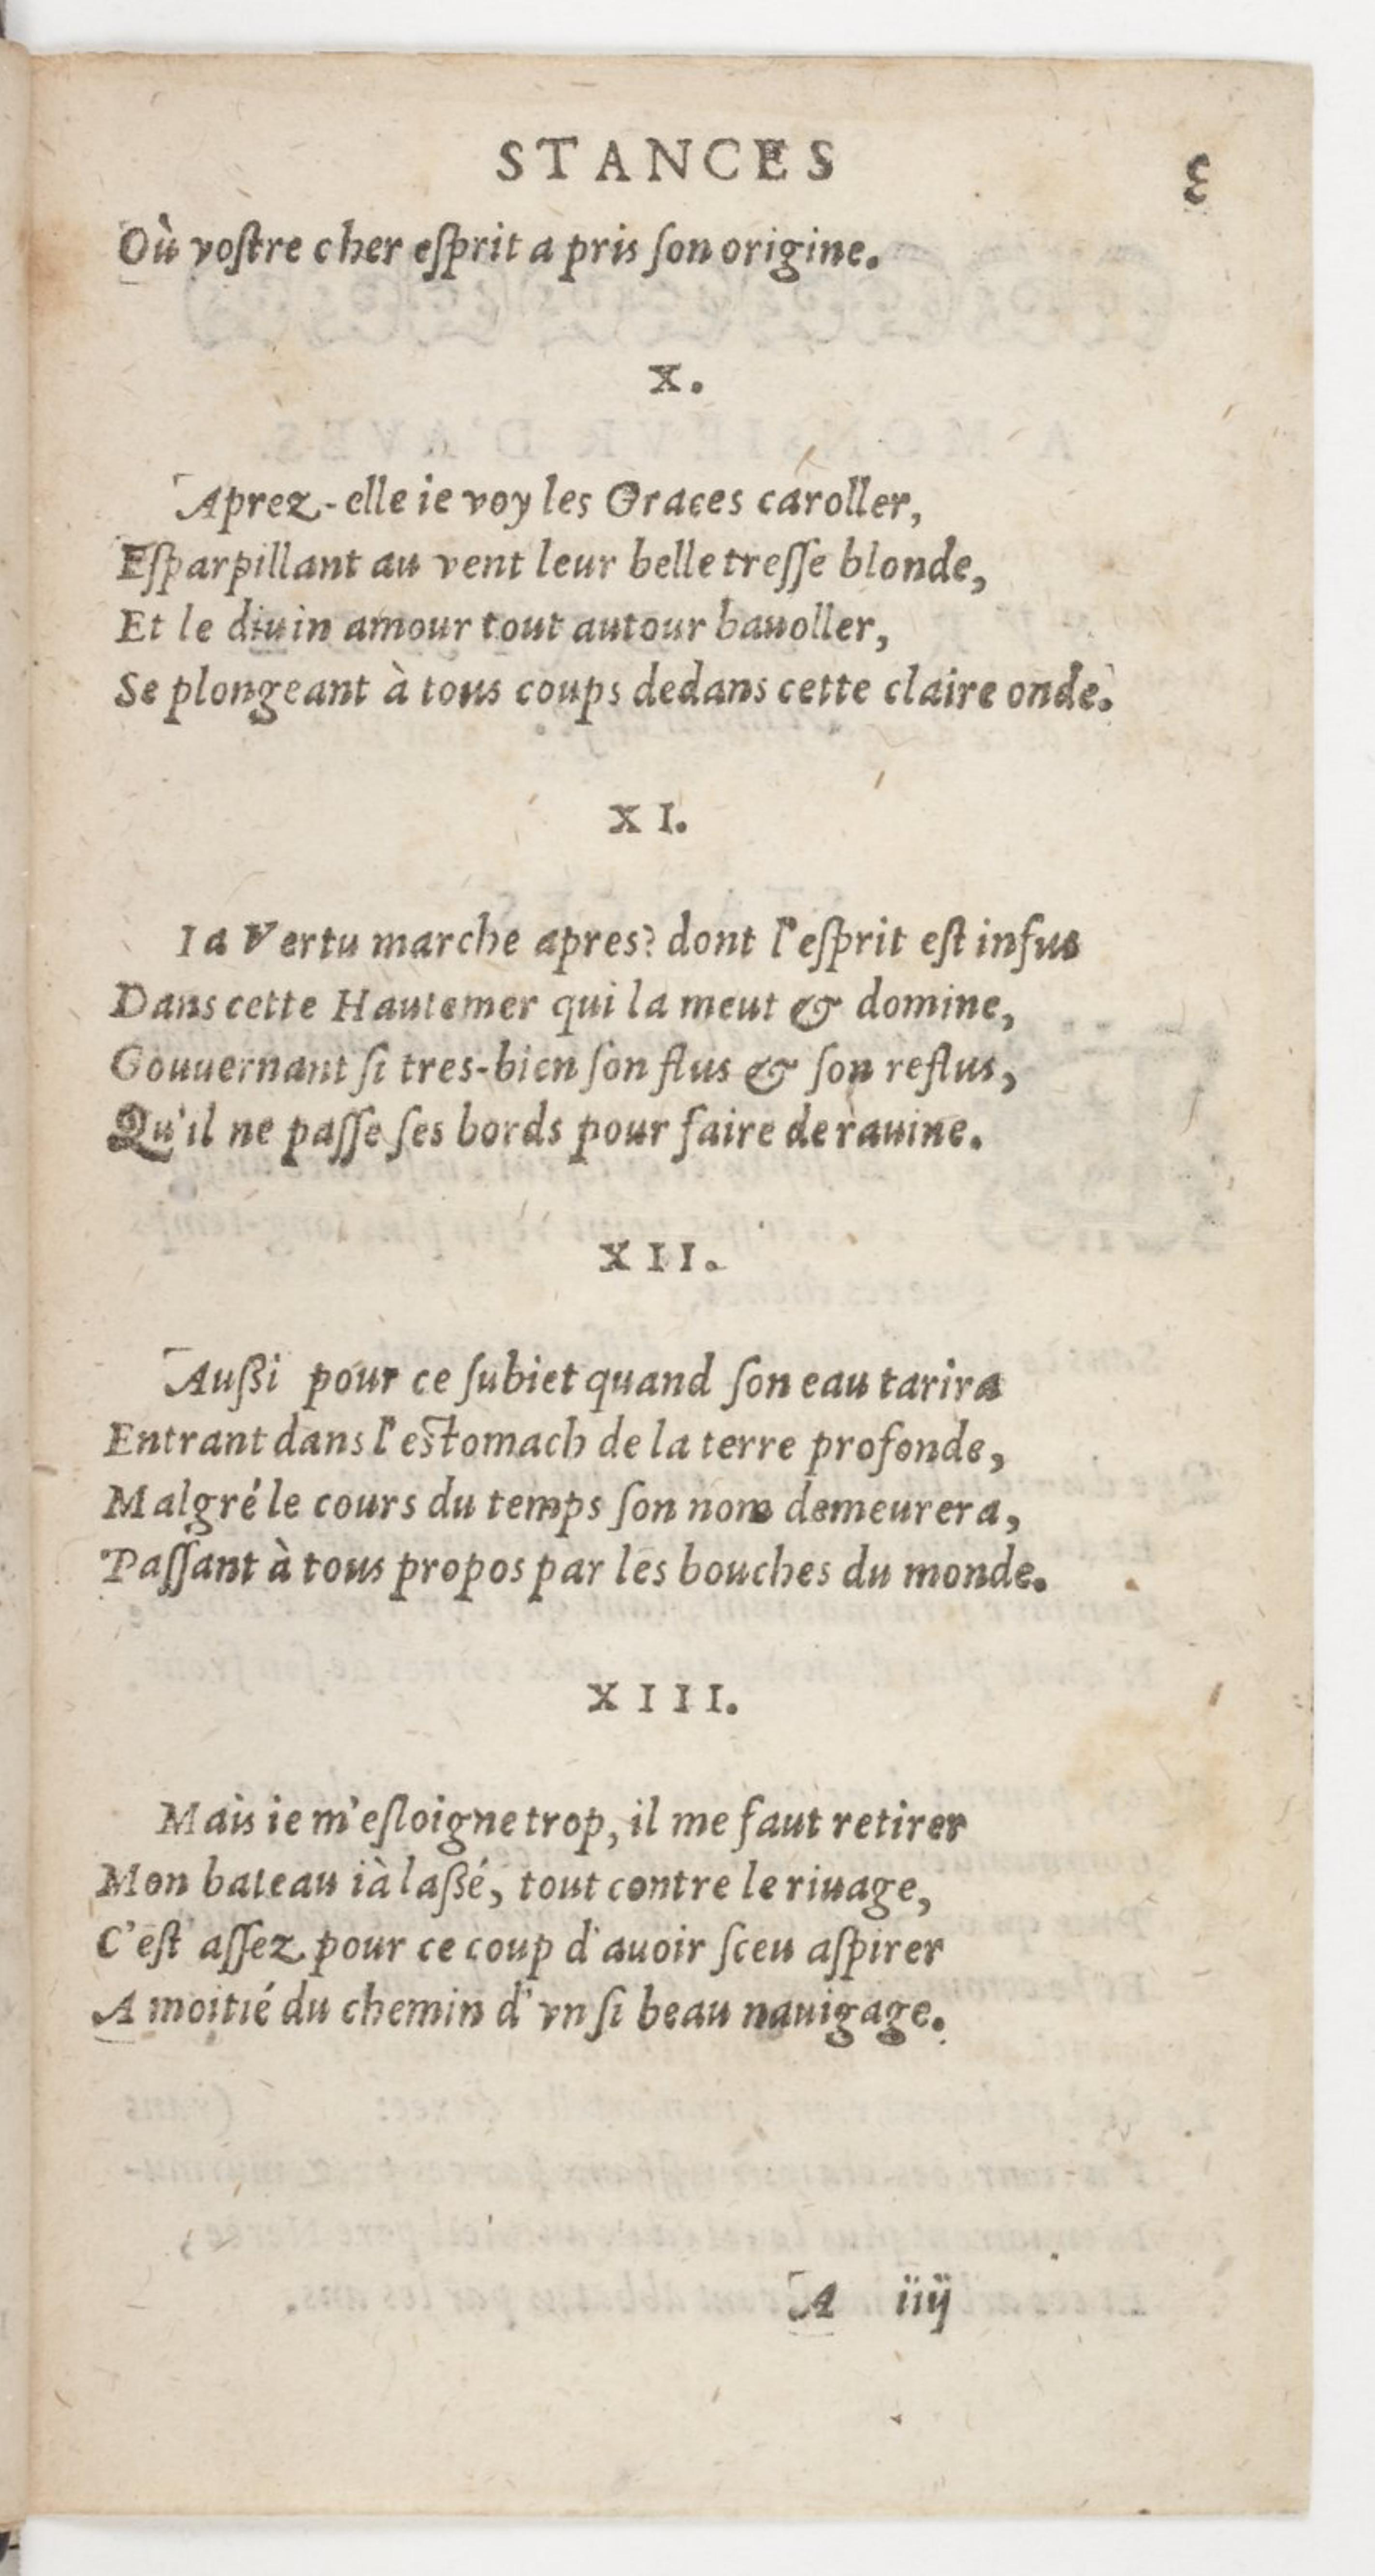 STANCES 3
Où vostre cher esprit a pris son origine.
X.
Aprez-elle ie voy les Graces caroller,
Esparpillant au vent leur belle tresse blonde,
Et le diuin amour tout autour bauoller,
Se plongeant à tous coups dedans cette claire onde.
XI.
Ia Vertu marche apres? dont l'esprit est infus
Dans cette Hautemer qui la meut & domine,
Gouuernant si tres-bien son flus & son reflus,
Qu'il ne passe ses bords pour faire de rauine.
XII.
Außi pour ce subiet quand son eau tarira
Entrant dans l'estomach de la terre profonde,
Malgré le cours du temps son nom demeurera,
Passant à tous propos par les bouches du monde.
XIII.
Mais ie m'esloigne trop, il me faut retirer
Mon bateau ià laßé, tout contre le riuage,
C'est assez pour ce coup d'auoir sceu aspirer
A moitié du chemin d'vn si beau nauigage.
A iiij